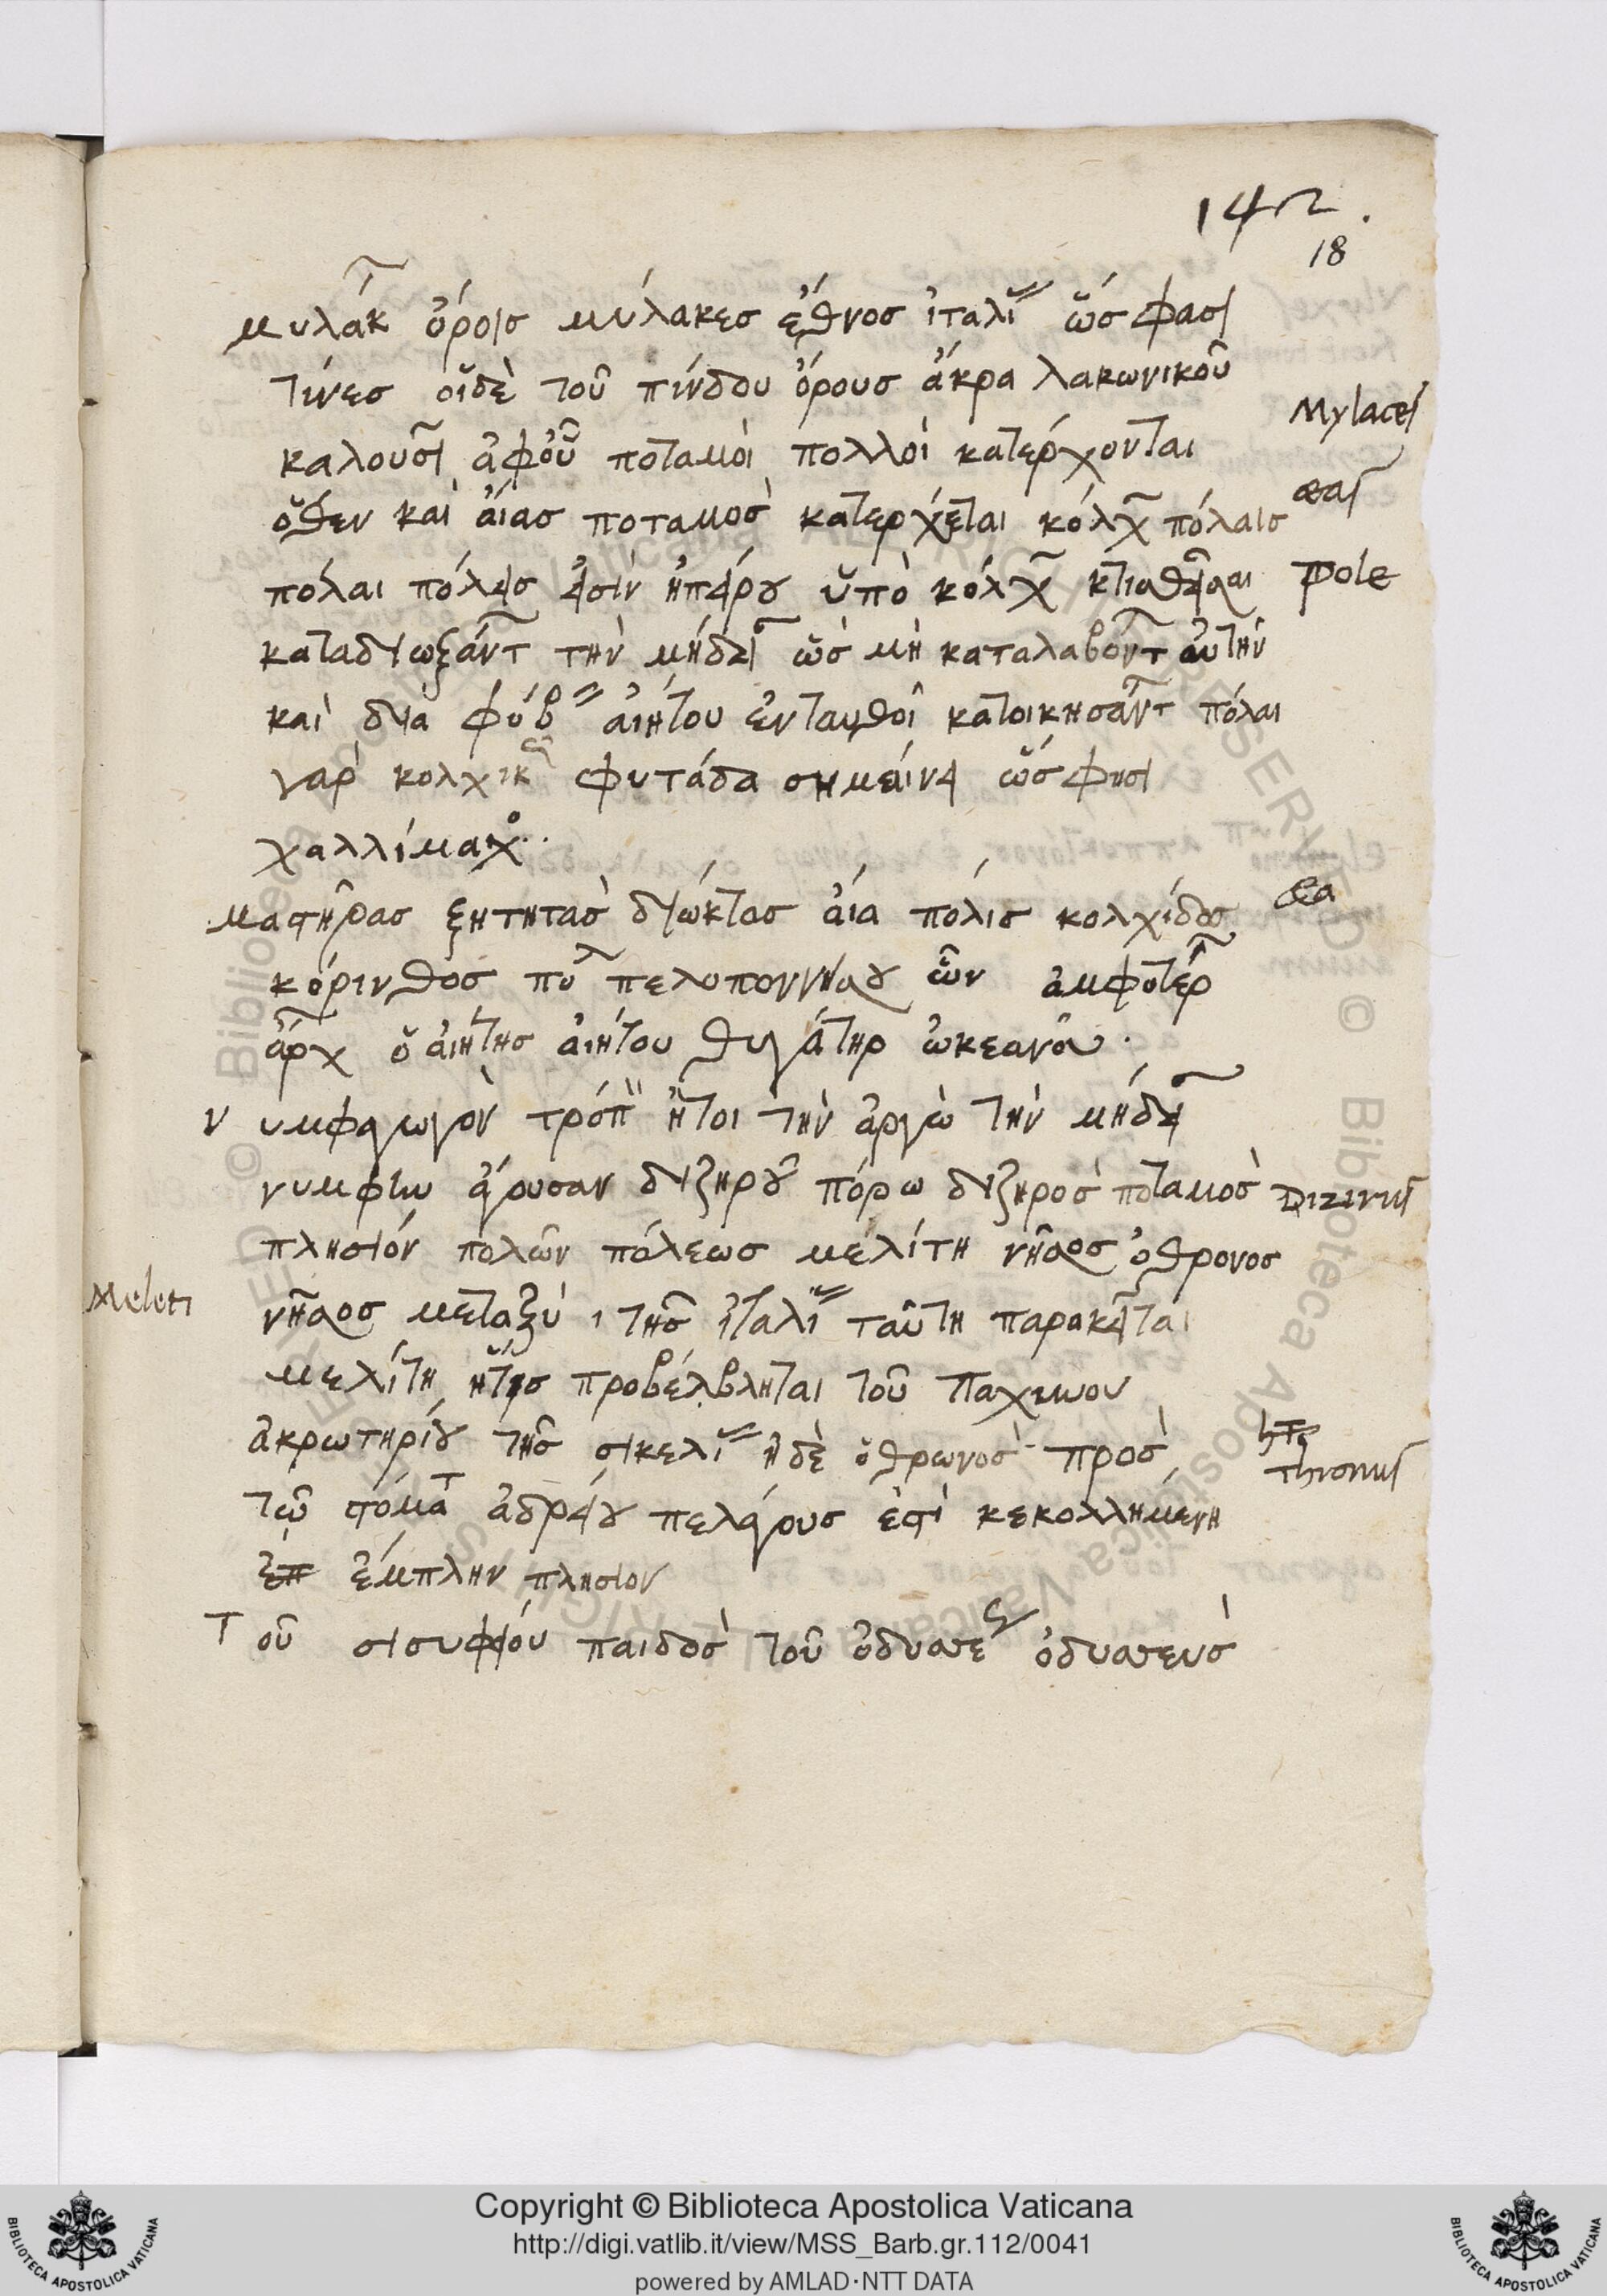 142.
18
μυλάκ ὅροις μύλακες ἔθνος ἰταλί ὥς φασι
τίνες οἵδὲ τοῦ πίνδου ὄρους ἄκρα λακωνικοῦ
Mylaces
καλοῦσι ἀφοὗ ποταμοὶ πολλοὶ κατέρχονται
ὅθεν καὶ ἄιας ποταμὸς κατερχέται κόλχ πόλαις
æas
πόλαι πόλεις εἰσὶν ἠπείρου ὑπὸ κόλχ κτισθεῖσαι
Pole
καταδιωξάντ τὴν μήδει ὡς μὴ καταλαβόντ αὐτὴν
καὶ διὰ φόβ ἀιήτου ἐνταυθοῖ κατοικησάντ πόλαι
γαρ κολχικ φυτάδα σημαίνει ὥς φησι
χαλλίμαχο..
μαστῆρας ζητητὰς διώκτας ἄια πόλις κολχίδος
æa
κόρινθος πολ πελοποννήσου ὧν ἀμφοτέρ
ἄρχ ὁ ἀιήτης ἀιήτου θυγάτηρ ὠκεανοῦ.
νυμφαγωγὸν τρόπ ἤτοι τὴν ἀργὼ τὴν μήδει
νυμφην ἄγουσαν διζηροῦ πόρω διζηρὸς ποταμὸς
Dizirus
πλησιόν πολῶν πόλεως μελίτη νῆσος ὀθρονος
Meleti
νῆσος μεταξύ ι τῆς ἰταλί ταύτη παρακεῖται
μελίτη ἥτις προβέλβληται τοῦ παχινου
ἀκρωτηρίου τῆς σικελί ἡ δὲ ὀθρωνος προσ
Thronus
τῷ στόμα ἀδρίου πελάγους ἐστὶ κεκολλημένη
ἐπ ἔμπλην πλησιον
Τοῦ σισυφείου παιδὸς τοῦ ὀδυσσε ὀδυσσευς
Copyright © Biblioteca Apostolica Vaticana
http://digi.vatlib.it/view/MSS_Barb.gr.112/0041
powered by AMLAD·NTT DATA
BIBLIOTECA APOSTOLICA VATICANA
BIBLIOTECA APOSTOLICA VATICANA